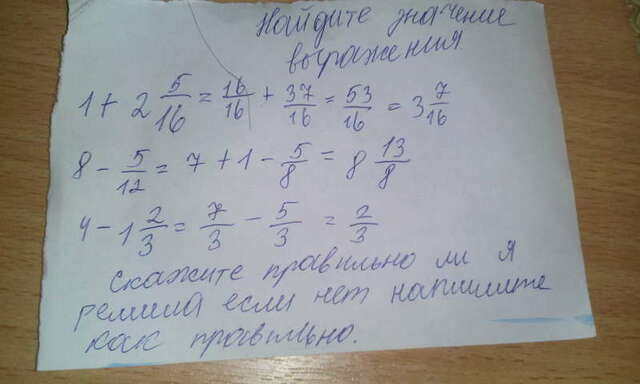 Найдите значение
выражения
1 + 2 5/16 = 16/16 + 37/16 = 53/16 = 3 7/16
8 - 5/12 = 7 + 1 - 5/8 = 8 13/8
4 - 1 2/3 = 7/3 - 5/3 = 2/3
Скажите правильно ли я
решила если нет напишите
как правильно.